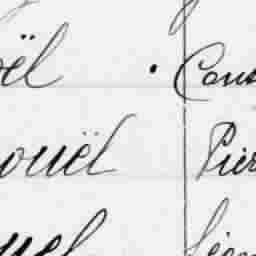 ël . Cons
ouël Pier
uel Léon